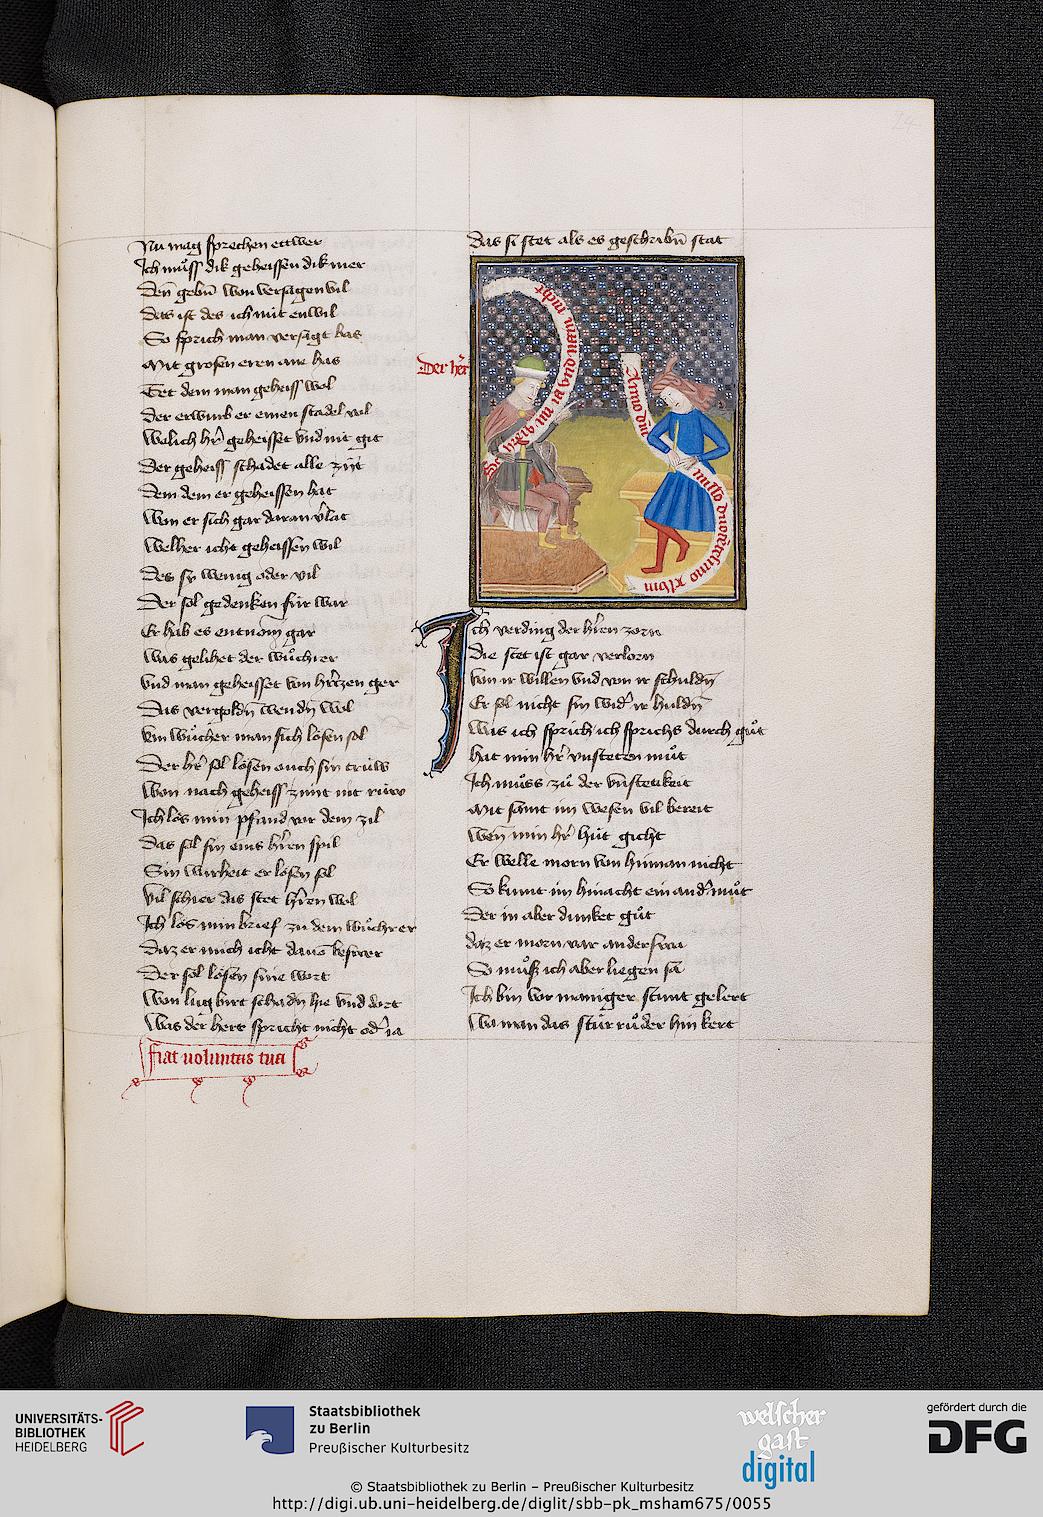 24
Nu mag sprechen ettwer
Ich muͦss dik geheissen dik mer
Den̄ gebn̄ won versagen vil
das ist des ich nit enwil
So sprich man versagt bas
Mit grosen eren ane has
Tet dem man geheiss wol
Der erwurb er einen stadel vol
Welich hr̄ geheisset vnd nit git
Der geheiss schadet alle zyt
Dem dem er geheissen hat
Won er sich gar daran v̄lat
Welher icht geheissen wil
Des sy wenig oder vil
Der sol gedenken für war
Er hab es entnom̄ gar
Was gelihet der wuͦchrer
Vnd man geheisset von hr̄tzen ger
Das vergoldn̄ wendn̄ wol
Von wuͦcher man sich losen sol
Der hr̄ sol losen ouch sin trüw
Won nach geheiss zimt nit rüw
Ich los min pfand vor dem zil
Das sol sin eins hr̄en spil
Sin warheit er losen sol
Vil schier das stet hr̄en wol
Ich los min brief zu dem wuͦchrer
Daz er mich icht dauō beswer
Der sol losen sine wort
Won lug birt schadn̄ hie vnd dort
Was der herr spricht nicht od̄ ia
fiat uoluntas tua
Das si stet als es geschribn̄ stat
Der hr̄
schreib im ia vnd nům nicht
Anno dn̄i
millo ducentesimo xlviii
Ich verding der hr̄en zorn
Die stet ist gar verlorn
Von ir willen vnd von ir schuldn̄
Er sol nicht sin wid̄ ir huldn̄
Was ich sprich ich sprichs durch guͦt
hat min hr̄ vnsteten muͦt
Ich muͦss zuͦ der vn̄stetikeit
Mit samt im wesen vil bereit
Wen̄ min hr̄ hüt gicht
Er welle morn von hinnan nicht
So kumt im hinacht ein and̄ muͦt
Der in aber dunket guͦt
daz er morn var anderswa
So muͦß ich aber liegen sa
Ich bin vor maniger stunt gelert
Wa man das stür ruͦder hin kert
UNIVERSITÄTS-
BIBLIOTHEK
HEIDELBERG
Staatsbibliothek
zu Berlin
Preußischer Kulturbesitz
welscher
gast
digital
gefördert durch die
DFG
© Staatsbibliothek zu Berlin – Preußischer Kulturbesitz
http://digi.ub.uni-heidelberg.de/diglit/sbb-pk_msham675/0055